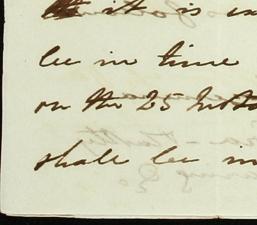 it is
be in time
on the 25 Inst
shall be in